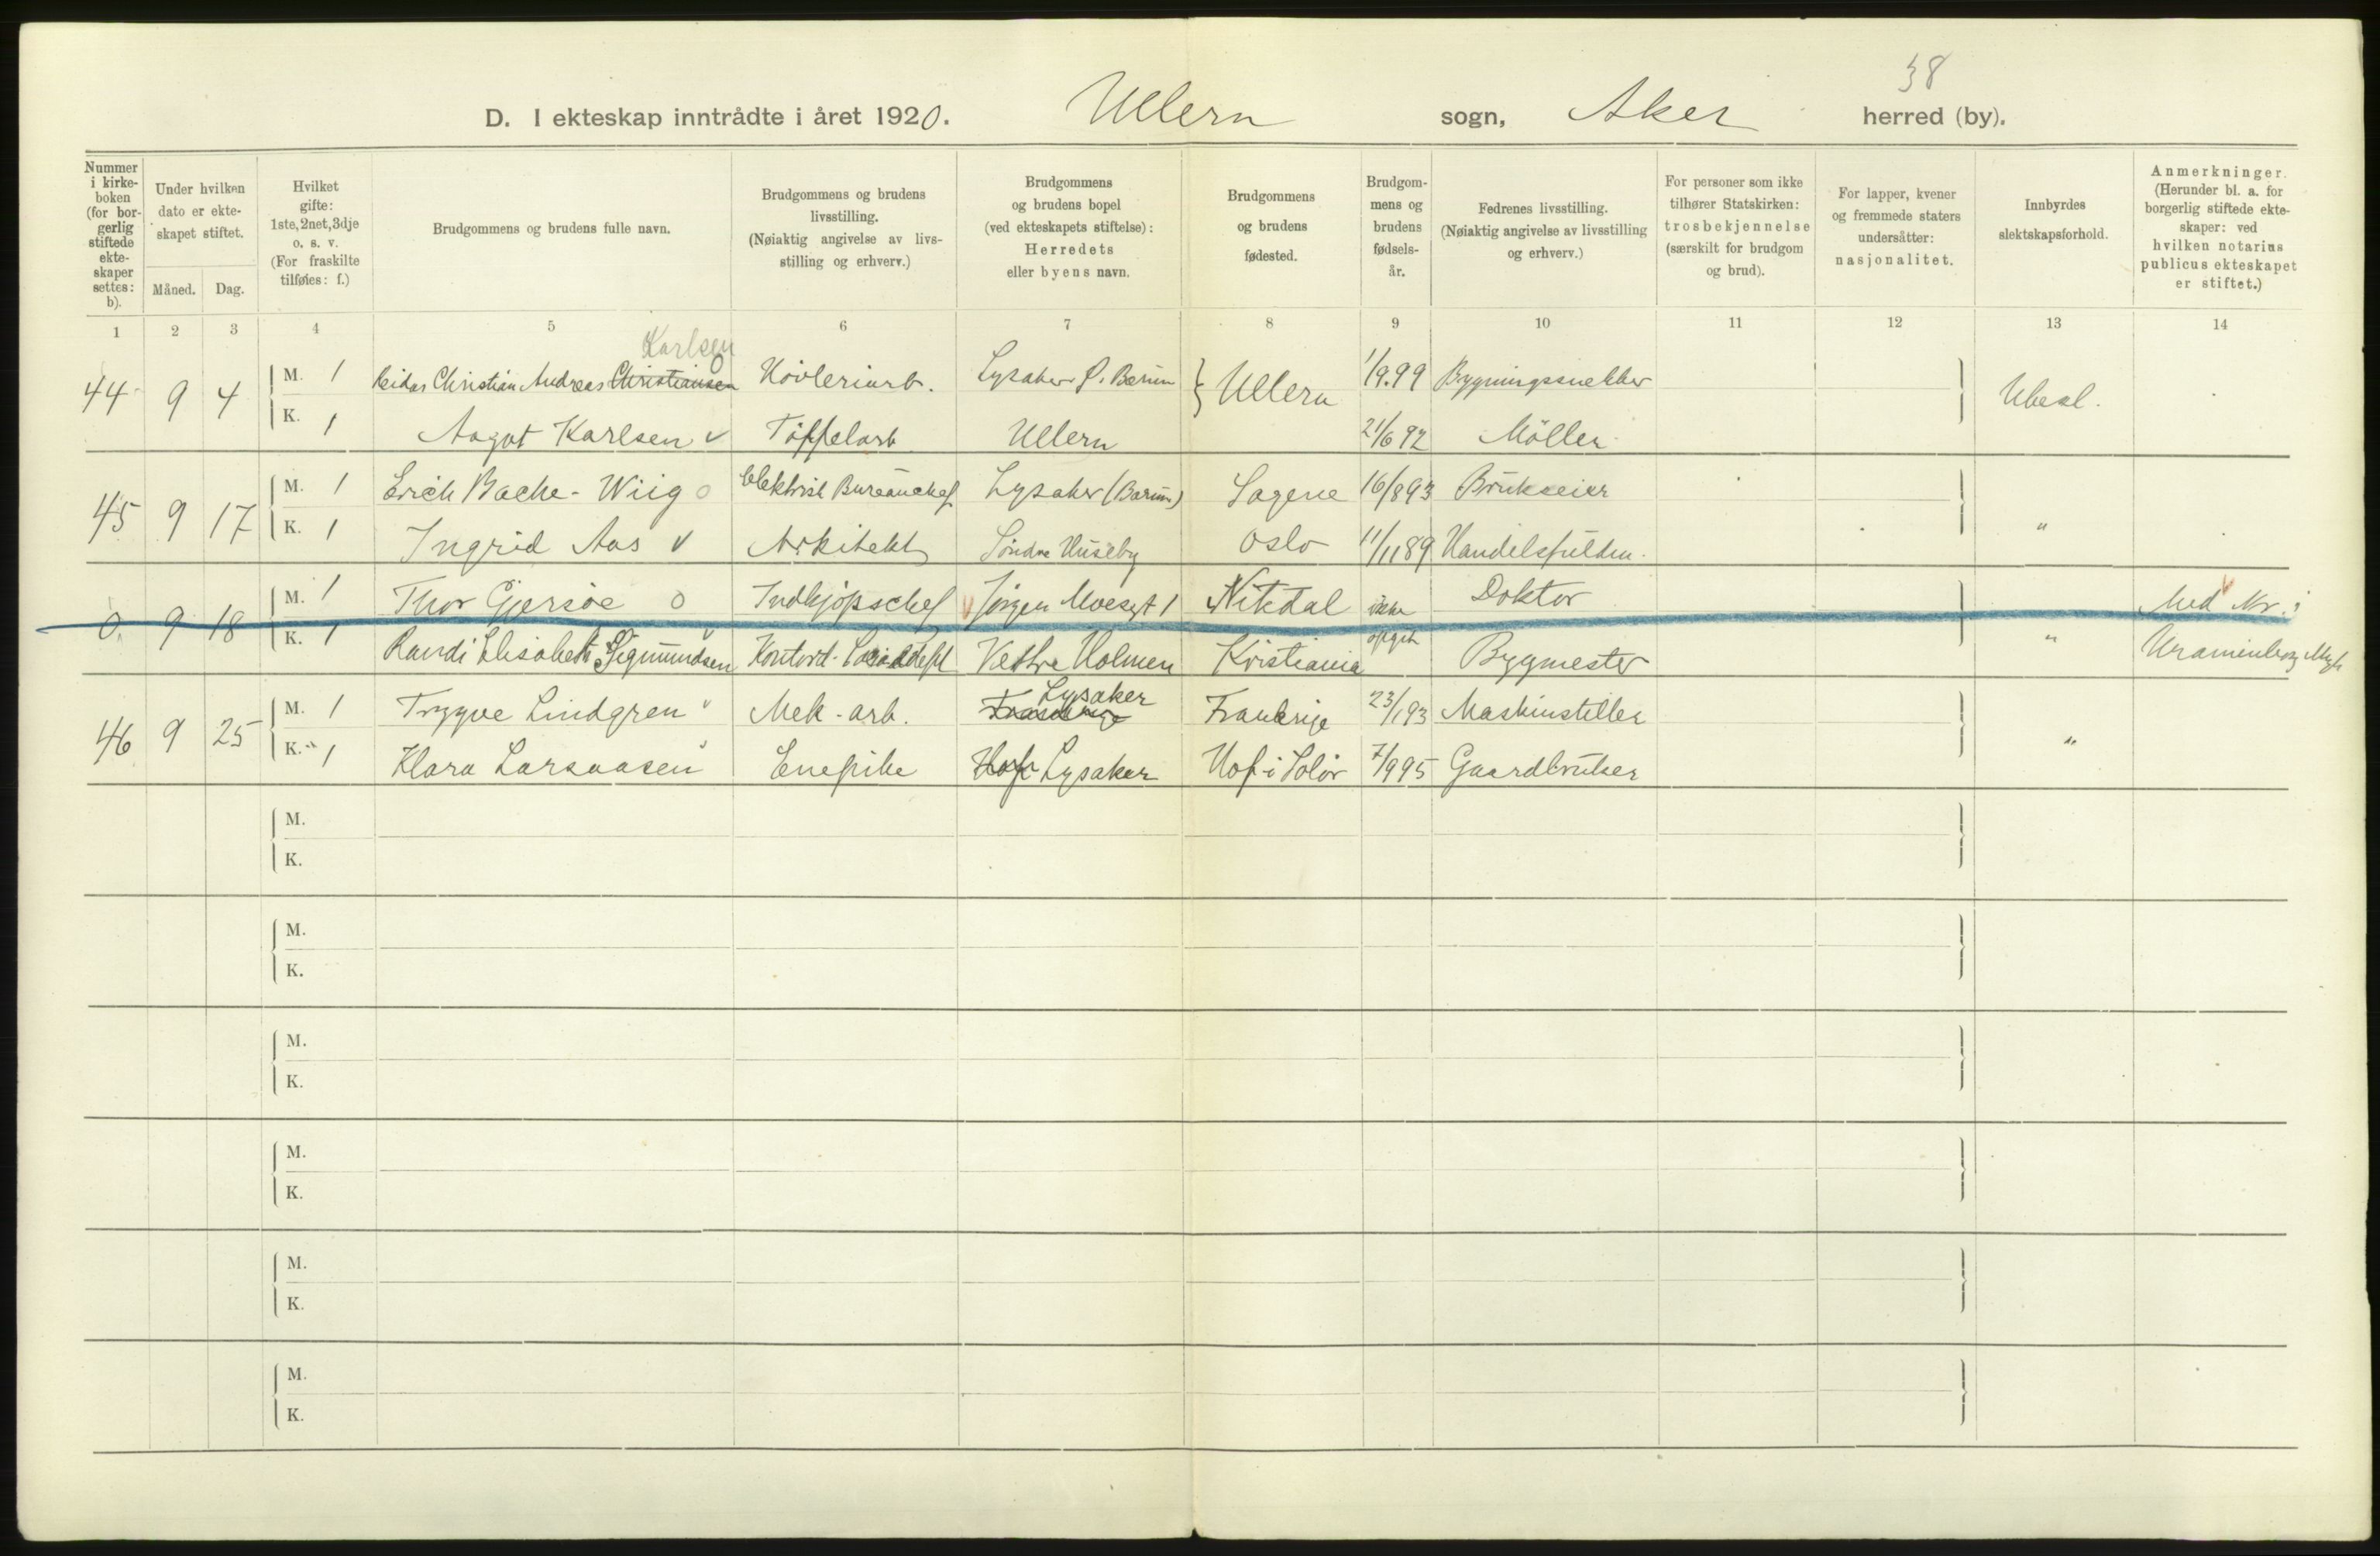 38
D. I ekteskap inntrådte i året 1920. Ullern sogn, Aker herred (by).
Nummer i kirke- boken (for bor- gerlig stiftede ekte- skaper settes: b).
Under hvilken dato er ekte- skapet stiftet.
Måned. Dag.
Hvilket gifte: 1ste, 2net, 3dje o. s. v. (For fraskilte tilføies: f.)
Brudgommens og brudens fulle navn.
Brudgommens og brudens livsstilling. (Nøiaktig angivelse av livs- stilling og erhverv.)
Brudgommens og brudens bopel (ved ekteskapets stiftelse): Herredets eller byens navn.
Brudgommens og brudens fødested.
Brudgom- mens og brudens fødsels- år.
Fedrenes livsstilling. (Nøiaktig angivelse av livsstilling og erhverv.)
For personer som ikke tilhører Statskirken: trosbekjennelse (særskilt for brudgom og brud).
For lapper, kvener og fremmede staters undersåtter: nasjonalitet.
Innbyrdes slektskapsforhold.
Anmerkninger. (Herunder bl. a. for borgerlig stiftede ekte- skaper: ved hvilken notarius publicus ekteskapet er stiftet.)
1 2 3 4 5 6 7 8 9 10 11 12 13 14
Karlsen
44 9 4 M. 1 Reidar Christian Andreas Christiansen Høvleriarb. Lysaker Bærum Ullern 1/9.99 Bygningssnekker Ubesl.
K. 1 Aagot Karlsen v Tøffelarb Ullern 21/6 92 Möller
45 9 17 M. 1 Erich Bache-Wiig o Elektrisk Bureauchef Lysaker (Bærum) Sagene 16/893 Brukseier
K. 1 Ingrid Aas v Arkitekt Söndre Huseby Oslo 11/1189 Handelsfuldm. "
0. 9 18 M. 1 Thor Gjersøe o Indkjöpschef Jørgen Moesgt 1 Nitedal ikke opgit Doktor Med Nr. i
K. 1 Randi Elisabeth Sigmundsen Kontord. Vestre Holmen Kristiania Bygmester " Uranienborg
46 9 25 M. 1 Trygve Lindgren Mek-arb. Lysaker Frankrige 23/193 Maskinstiller
K. " 1 Klara Larsaasen Enepike Hof Lysaker Hof i Solør 7/995 Gaardbruker "
M.
K.
M.
K.
M.
K.
M.
K.
M.
K.
M.
K.